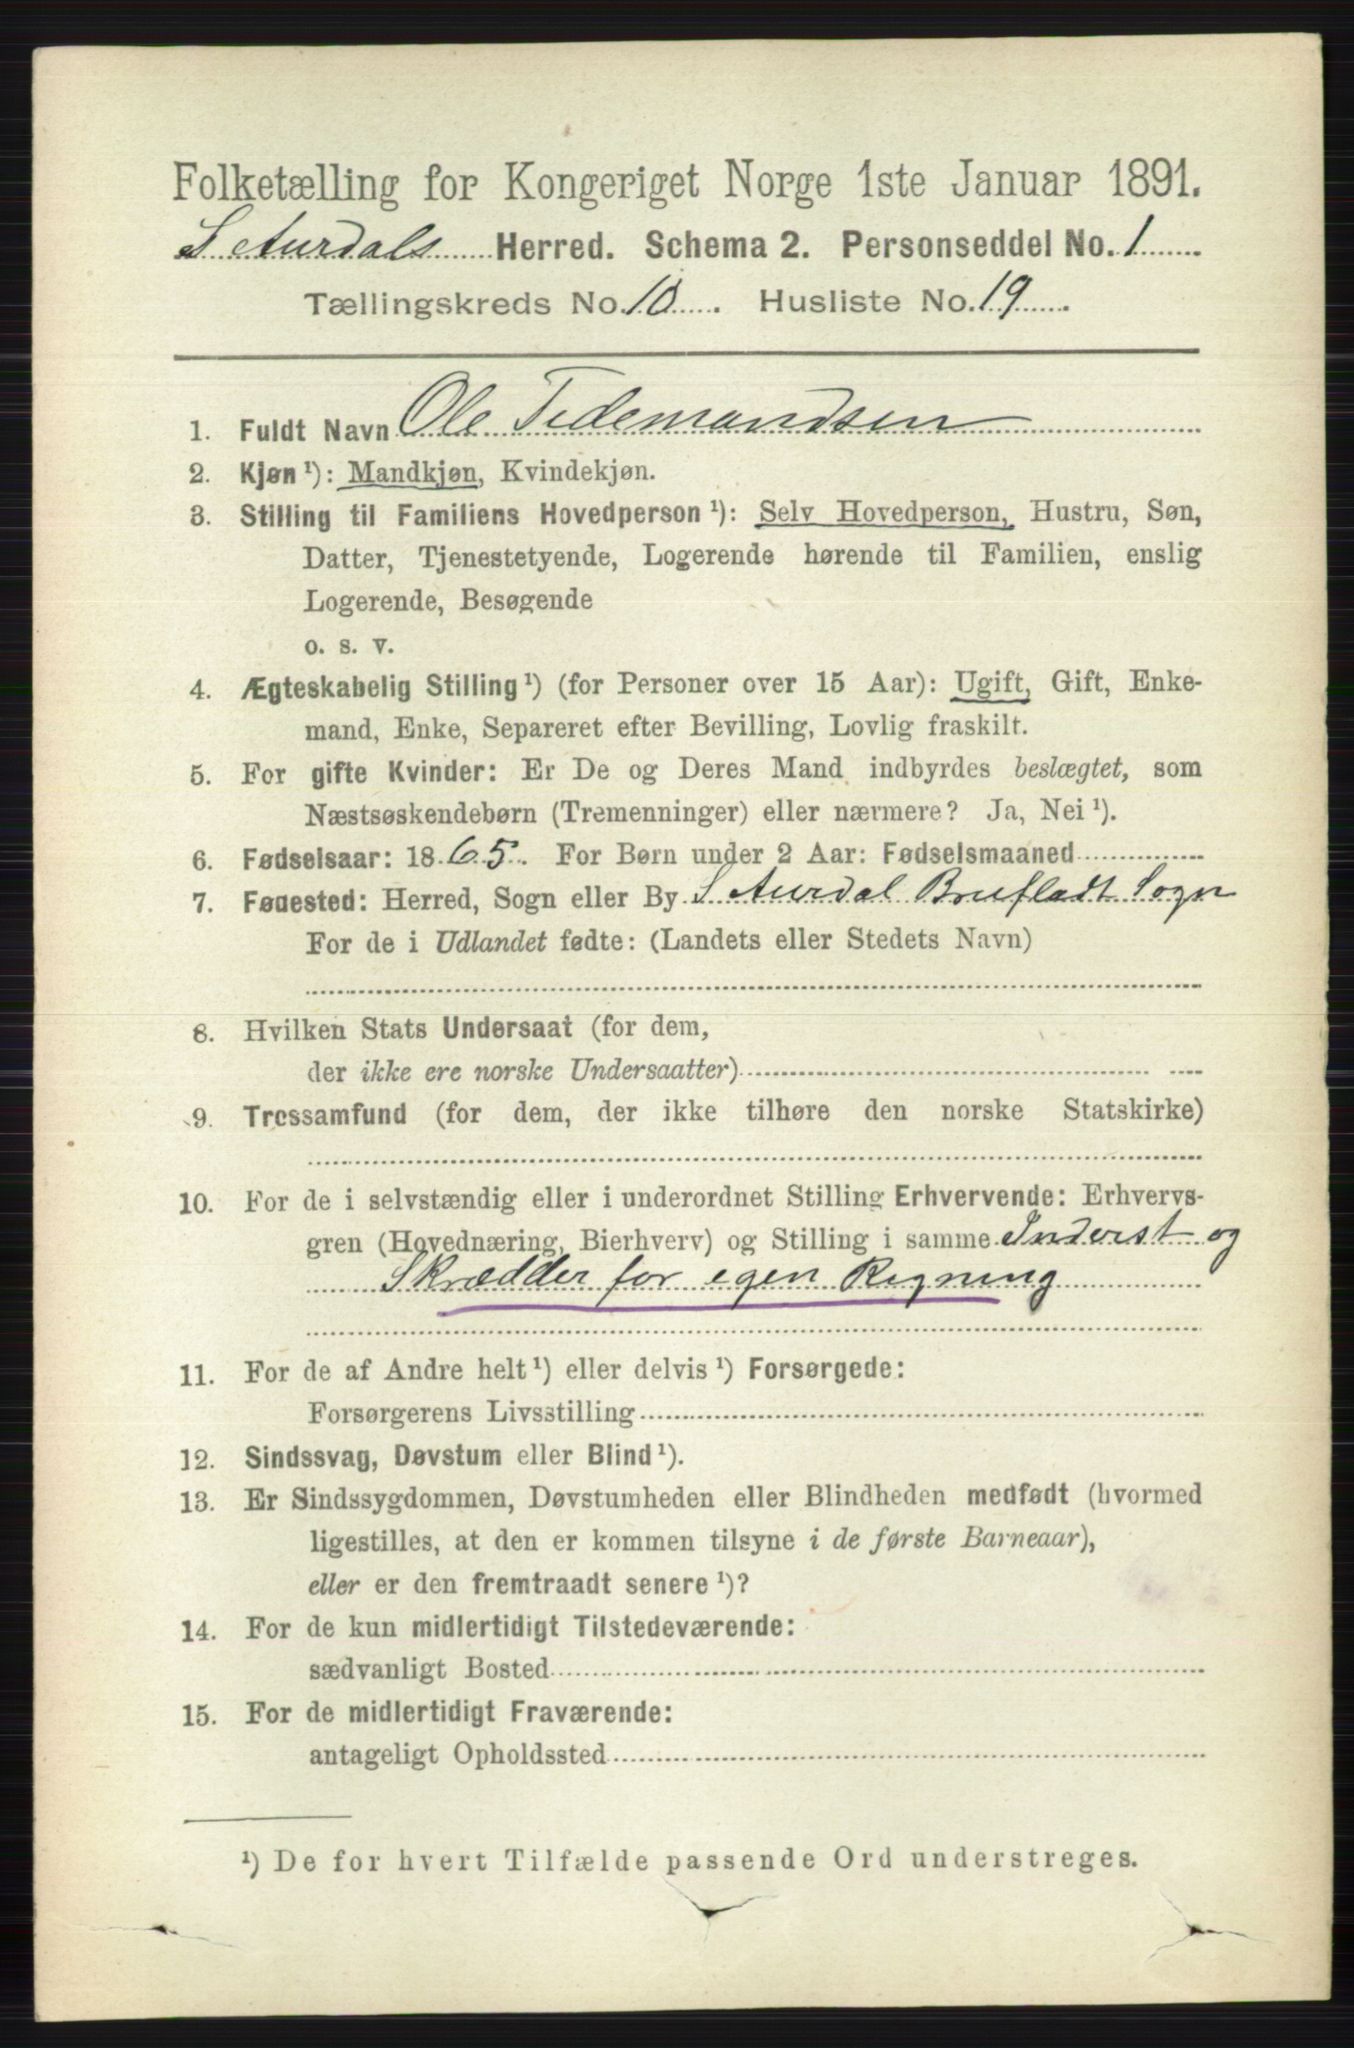 Folketælling for Kongeriget Norge 1ste Januar 1891.
S Aurdals Herred. Schema 2. Personseddel No. 1
Tællingskreds No. 10. Husliste No. 19.
1. Fuldt Navn Ole Tidemandsen
2. Kjøn ¹): Mandkjøn, Kvindekjøn.
3. Stilling til Familiens Hovedperson ¹): Selv Hovedperson, Hustru, Søn,
Datter, Tjenestetyende, Logerende hørende til Familien, enslig
Logerende, Besøgende
o. s. v.
4. Ægteskabelig Stilling ¹) (for Personer over 15 Aar): Ugift, Gift, Enke-
mand, Enke, Separeret efter Bevilling, Lovlig fraskilt.
5. For gifte Kvinder: Er De og Deres Mand indbyrdes beslægtet, som
Næstsøskendebørn (Tremenninger) eller nærmere? Ja, Nei ¹).
6. Fødselsaar: 1865. For Børn under 2 Aar: Fødselsmaaned
7. Fødested: Herred, Sogn eller By S Aurdal Brufladt Sogn
For de i Udlandet fødte: (Landets eller Stedets Navn)
8. Hvilken Stats Undersaat (for dem,
der ikke ere norske Undersaatter)
9. Trossamfund (for dem, der ikke tilhøre den norske Statskirke)
10. For de i selvstændig eller i underordnet Stilling Erhvervende: Erhvervs-
gren (Hovednæring, Bierhverv) og Stilling i samme Inderst og
Skrædder for egen Regning
11. For de af Andre helt ¹) eller delvis ¹) Forsørgede:
Forsørgerens Livsstilling
12. Sindssvag, Døvstum eller Blind ¹).
13. Er Sindssygdommen, Døvstumheden eller Blindheden medfødt (hvormed
ligestilles, at den er kommen tilsyne i de første Barneaar),
eller er den fremtraadt senere ¹)?
14. For de kun midlertidigt Tilstedeværende:
sædvanligt Bosted
15. For de midlertidigt Fraværende:
antageligt Opholdssted
¹) De for hvert Tilfælde passende Ord understreges.